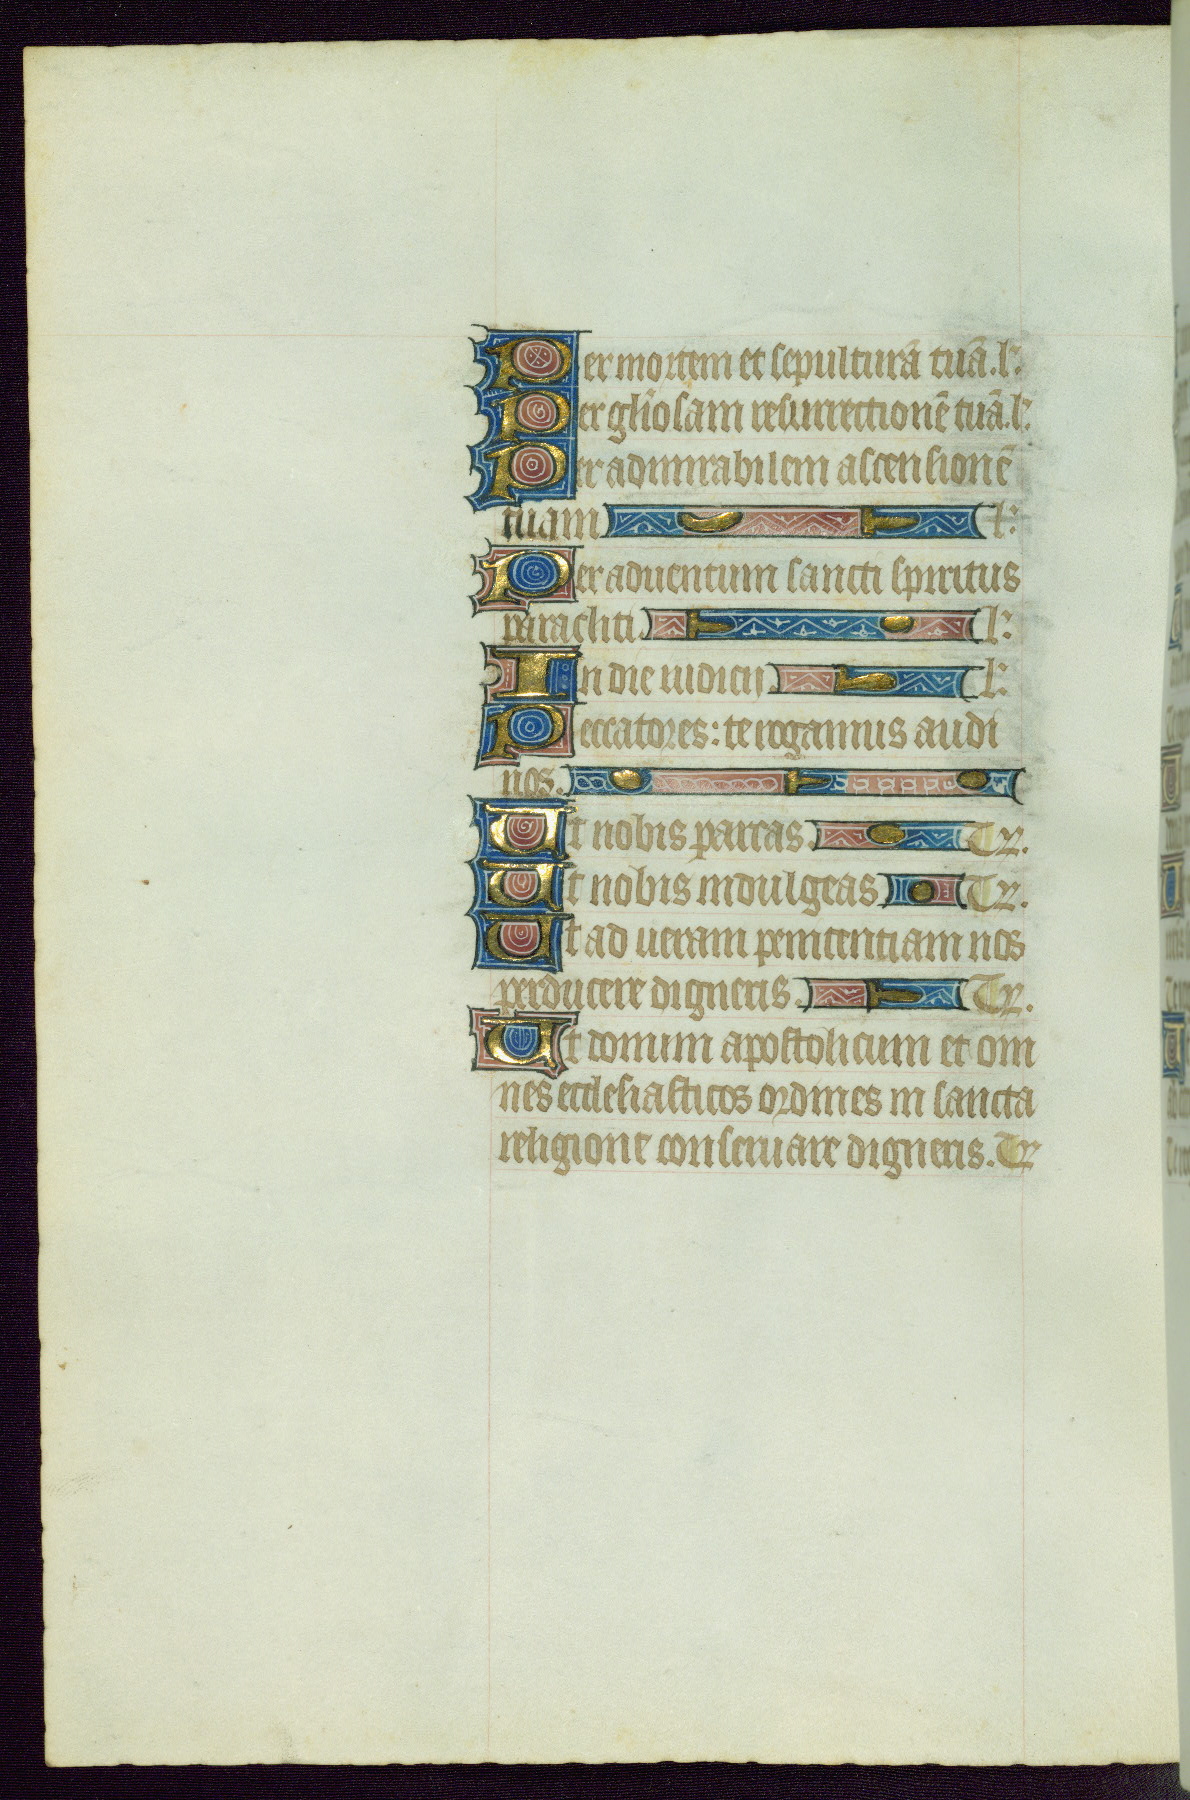 Per mortem et sepulturā tuā. l:
Per gl̄iosam resurrectionē tuā. l:
Per admirabilem ascensionē
tuam l:
Per aduentum sancti spiritus
paracliti. l:
In die iudicij l:
Peccatores: te rogamus audi
nos.
Ut nobis parcas. Tꝛ.
Ut nobis indulgeas Tꝛ.
Ut ad ueram penitentiam nos
perducere digneris. Tꝛ.
Ut domum apostolicum et om
nes ecclesiasticos ordines in sancta
religione conseruare digneris. Tꝛ